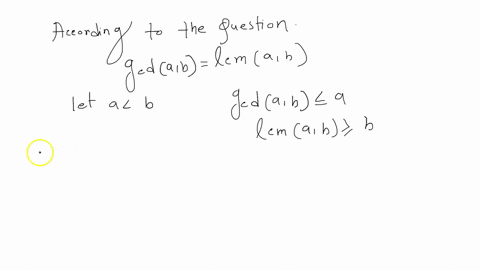 According to the Question.
gcd(a,b) = lcm(a,b)
let a< b gcd(a,b) ≤ a
lcm(a,b) ≥ b